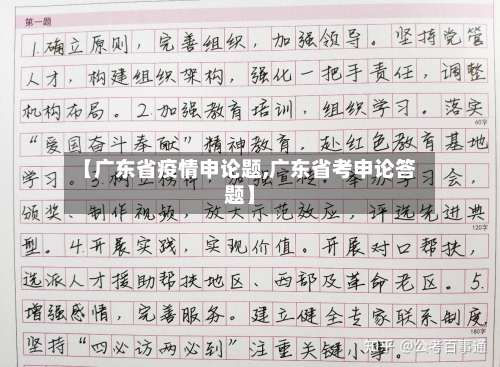 第一题
1.确立原则，完善组织，加强领导。坚持党管
人才，构建组织架构，强化一把手责任，调整
机构布局。2.加强教育培训，组织学习。落实
60字
“爱国奋斗奉献”精神教育，赴红色教育基地
【广东省疫情申论题,广东省考申论答
学习。3.树立榜样，加强宣传。学习会，
题】
颁奖、制作视频，放大示范效应，评选先进典
120字
型。4.开展实践，实现价值。开展对口帮扶，
选派人才援助帮扶地区、西部及革命老区。5.
增强感情，完善服务。建立健全专家联系制度，
180字
坚持“四必访两必到”注重关键小事。
知乎 @公考百事通